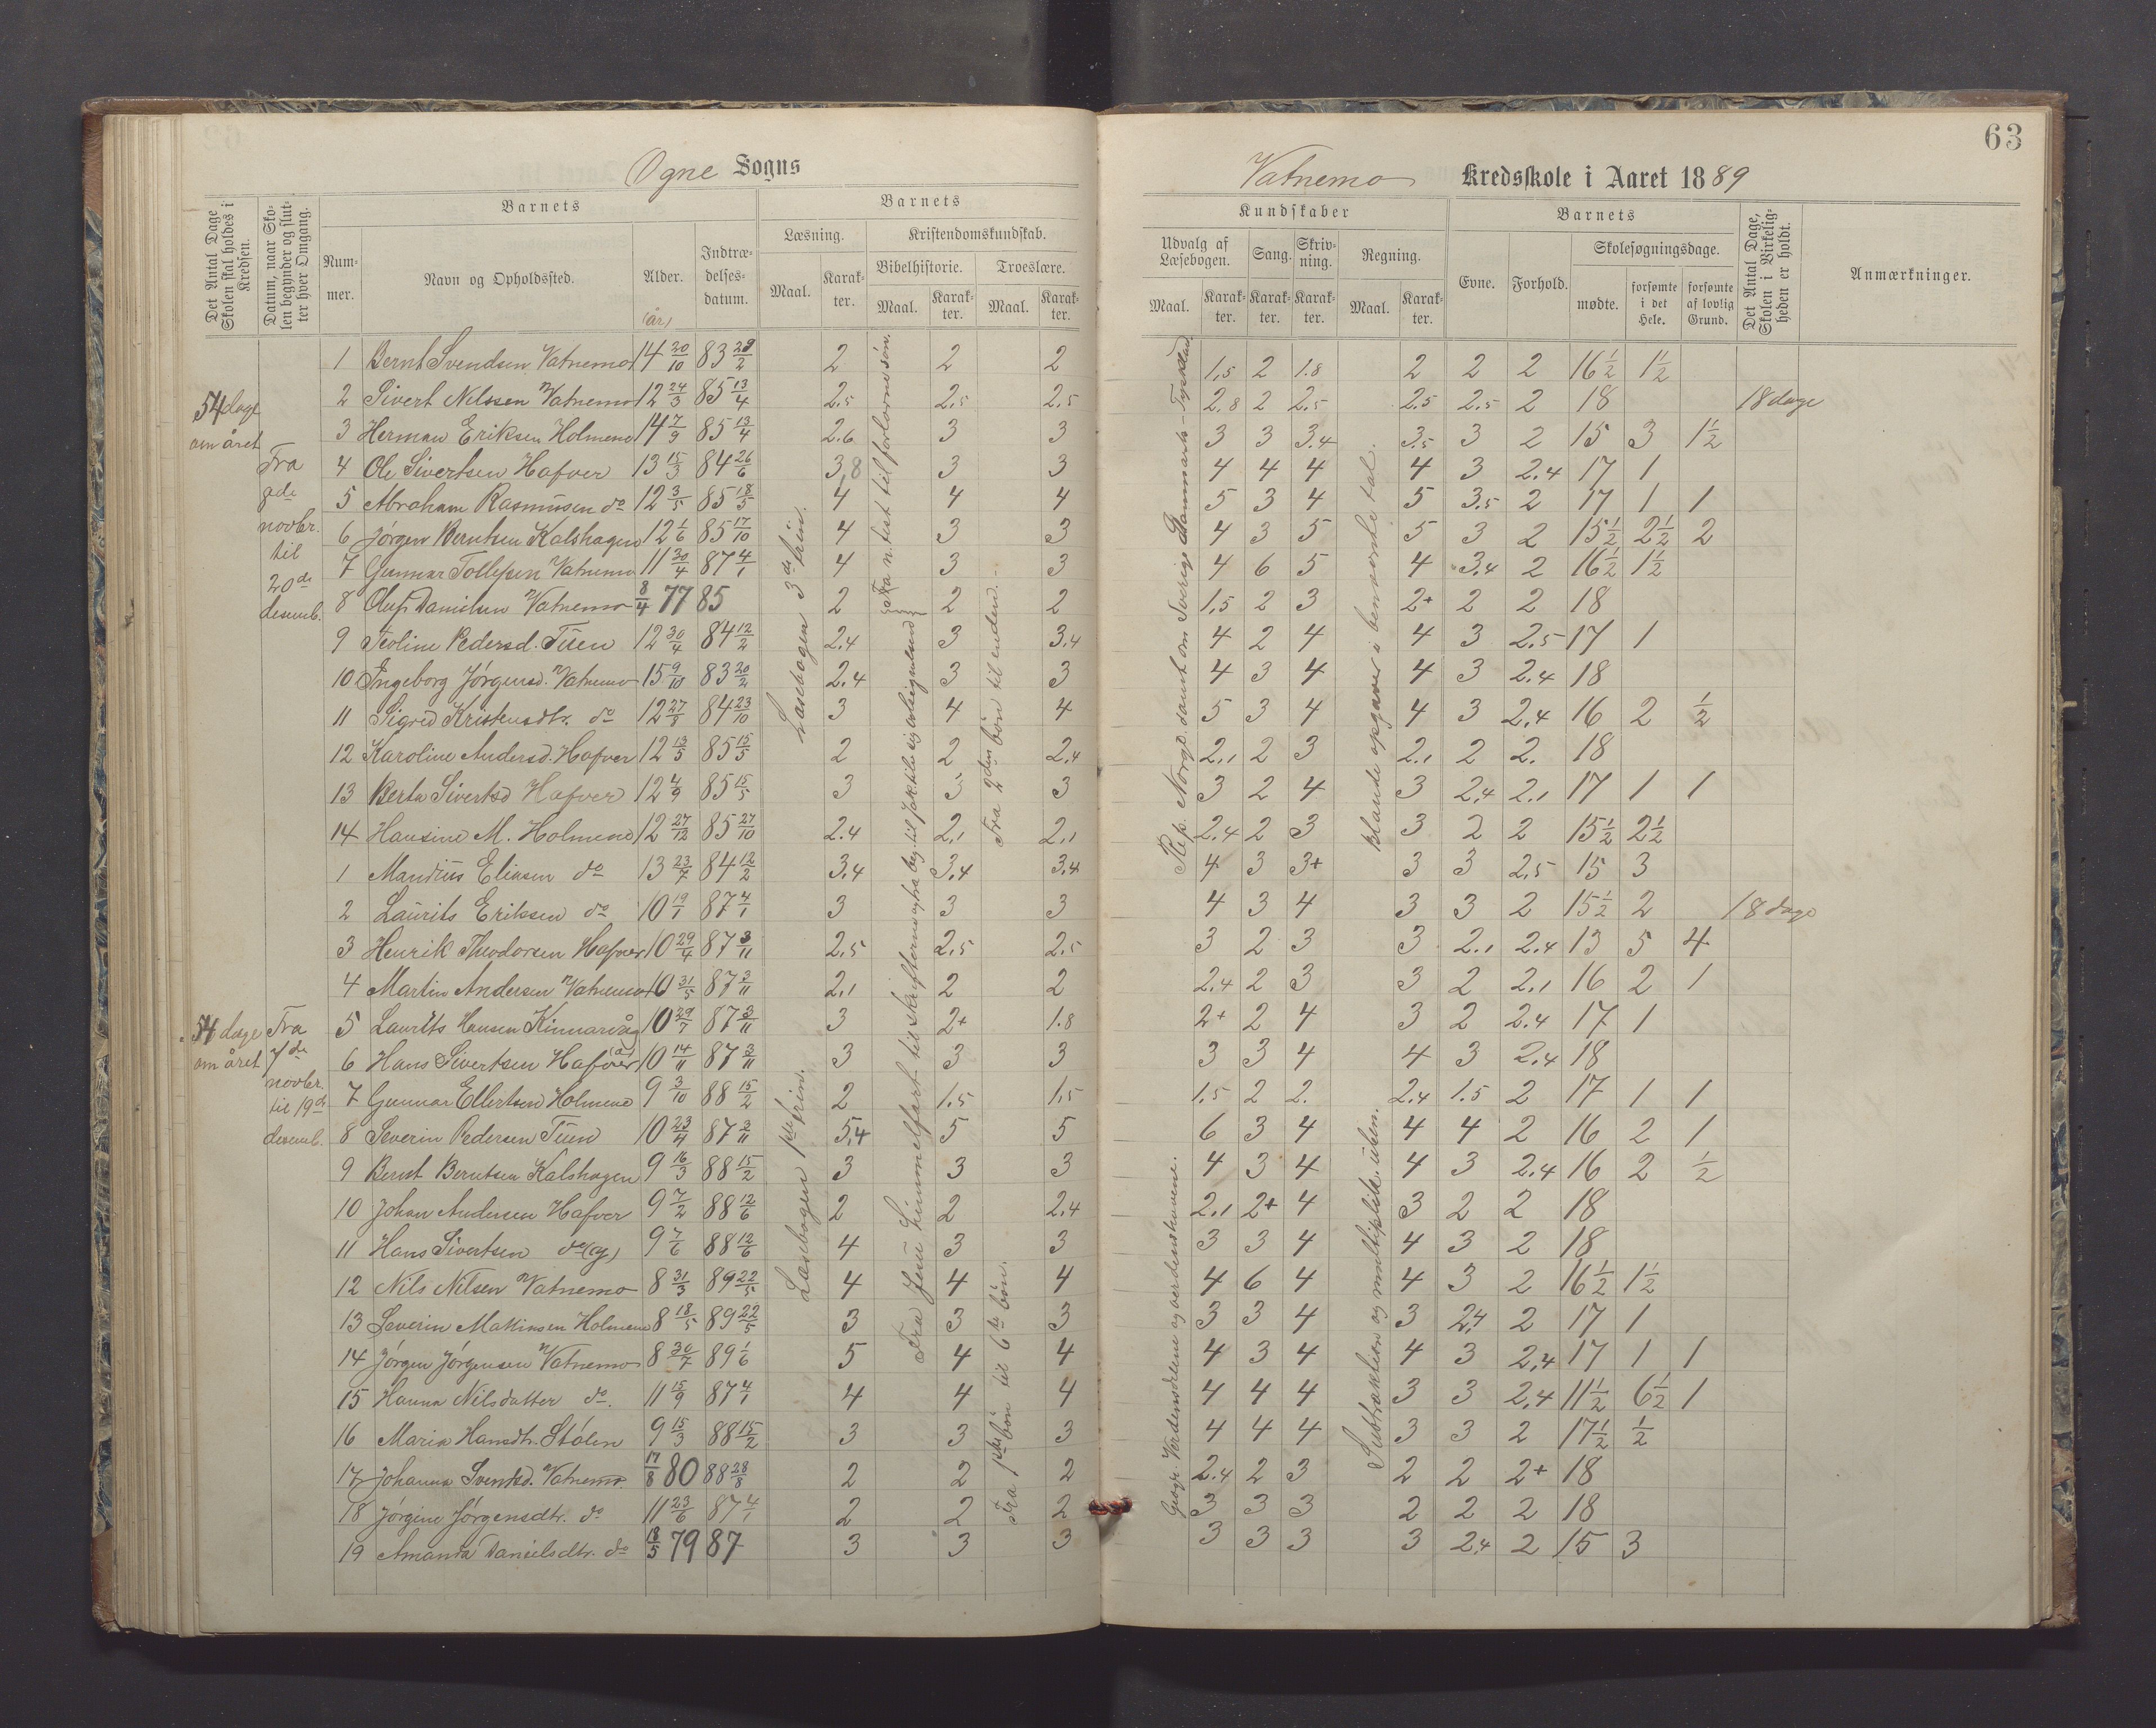 63
Ogne Sogns
Vatnemo Kredsskole i Aaret 1889
Det Antal Dage Skolen skal holdes i Kredsen.
Datum, naar Skolen begynder og slutter hver Omgang.
Barnets
Nummer.
Navn og Opholdssted.
Alder.
(år)
Indtrædelsesdatum.
Barnets
Læsning.
Maal.
Karakter.
Kristendomskundskab.
Bibelhistorie.
Maal.
Karakter.
Troeslære.
Maal.
Karakter.
Kundskaber
Udvalg af Læsebogen.
Maal.
Karakter.
Sang.
Karakter.
Skrivning.
Karakter.
Regning.
Maal.
Karakter.
Barnets
Evne.
Forhold.
Skolesøgningsdage.
mødte.
forsømte i det Hele.
forsømte af lovlig Grund.
Det Antal Dage, Skolen i Virkeligheden er holdt.
Anmærkninger.
54 dage om året
Fra 8de novbr. til 20de desemb.
Læsebogen 3die trin.
Fra 2den bøn til enden.
blande opgaver i benævnte tal.
1 Bernt Svendsen Vatnemo 14 20/10 83 28/2 2 2 2 1,5 2 1.8 2 2 2 16½ 1½
2 Sivert Nilssen Vatnemo 12 24/3 85 13/4 2,5 2,5 2,5 2,8 2 2,5 2.5 2.5 2 18 18 dage
3 Herman Eriksen Holmene 14 7/9 85 13/4 2.6 3 3 3 3 3.4 3.5 3 2 15 3 1½
4 Ole Sivertsen Hafver 13 15/3 84 26/6 3,8 3 3 4 4 4 4 3 2.4 17 1
5 Abraham Rasmussen do 12 3/5 85 18/5 4 4 4 5 3 4 5 3.5 2 17 1 1
6 Jørgen Berntsen Kalshagen 12 1/6 85 17/10 4 3 3 4 3 5 5 3 2 15½ 2½ 2
7 Gunnar Tollefsen Vatnemo 11 30/4 87 4/1 4 3 3 4 6 5 4 3.4 2 16½ 1½
8 Oluf Danielsen Vatnemo 8/4 77 85 2 2 2 1,5 2 3 2+ 2 2 18
9 Teoline Pedersd. Tuen 12 30/4 84 12/2 2.4 3 3.4 4 2 4 4 3 2.5 17 1
10 Ingeborg Jørgensd. Vatnemo 15 9/10 83 20/2 2.4 3 3 4 3 4 4 3 2.4 18
11 Sigrid Kristensdtr. do 12 27/8 84 23/10 3 4 4 5 3 4 4 3 2.4 16 2 ½
12 Karoline Andersd. Hafver 12 13/5 85 15/5 2 2 2,4 2,1 2 3 2.1 2 2. 18
13 Berta Sivertsd Hafver 12 4/9 85 15/5 3 3 3 3 2 4 3 2.4 2.1 17 1 1
14 Hansine M. Holmene 12 27/12 85 27/10 2.4 2,1 2,1 2,4 2 3 3 2 2 15½ 2½
54 dage om året
Fra 7de novbr. til 19de desemb.
Læsebogen 1ste trin.
Fra 1ste bøn til 6te bøn.
Geogr. Verdensdelene og verdenshavene.
Subtraktion og multiplik.
1 Mandius Eliasen do 13 23/7 84 12/2 3,4 3,4 3.4 4 3 3+ 3 3 2,5 15 3
2 Laurits Eriksen do 10 19/1 87 4/1 3 3 3 4 3 4 3 3 2 15½ 2 18 dage
3 Henrik Theodorsen Hafver 10 29/4 87 3/11 2,5 2,5 2.5 3 2 3 3 2.1 2.4 13 5 4
4 Martin Andersen Vatnemo 10 31/5 87 3/11 2,1 2 2 2.4 2 3 3 2 2.1 16 2 1
5 Laurits Hansen Kinnarvåg 10 29/7 87 3/11 3 2+ 1.8 2+ 2 4 3 2 2.4 17 1
6 Hans Sivertsen Hafver (æ) 10 14/11 87 3/11 3 3 3 3 3 4 4 3 2.4 18
7 Gunnar Ellertsen Holmene 9 3/10 88 15/2 2 1.5 1,5 1.5 2 2. 2.4 1.5 2 17 1 1
8 Severin Pedersen Tuen 10 23/4 87 3/11 5,4 5 5 6 3 4 4 4 2 16 2 1
9 Bernt Berntsen Kalshagen 9 16/3 88 15/2 3 3 3 4 3 4 4 3 2.4 16 2 ½
10 Johan Andersen Hafver 9 7/2 88 12/6 2 2 2.4 2.1 2+ 4 3 2 2 18
11 Hans Sivertsen do (y) 9 7/6 88 12/6 4 3 3 3 3 4 4 3 2 18
12 Nils Nilsen Vatnemo 8 31/3 89 22/5 4 4 4 4 6 4 4 3 2 16½ 1½
13 Severin Matinsen Holmene 8 18/5 89 22/5 3 3 3 3 3 4 3 2,4 2 17 1
14 Jørgen Jørgensen Vatnemo 8 30/7 89 1/6 5 4 4 4 3 4 4 3 2,4 17 1 1
15 Hanna Nilsdatter do. 11 15/9 87 4/1 4 4 4 4 4 4 3 3 2,4 11½ 6½ 1
16 Maria Hansdtr. Stølen 9 15/3 88 15/2 3 3 3 4 4 4 3 3 2 17½ ½
17 Johanna Sventsd. Vatnemo 17/8 80 88 28/8 2 2 2 2.4 2 3 2 2 2+ 18
18 Jørgine Jørgensdtr. do 11 23/6 87 4/1 2 2 2 3 3 3 2 2 2 18
19 Amanda Danielsdtr. do 18/5 79 87 3 3 3 3 3 3 3 2,4 2 15 3